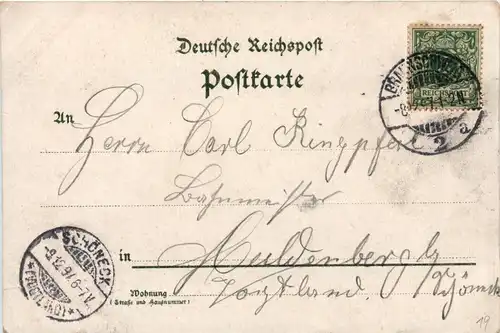 Deutsche Reichspost
Postkarte
REICHSPOST
An Herrn Carl Ringpfeil
Bahnmeister
in Muldenberg
Wohnung Voigtland.
(Straße und Hausnummer)
SCHÖNECK
2 a
19